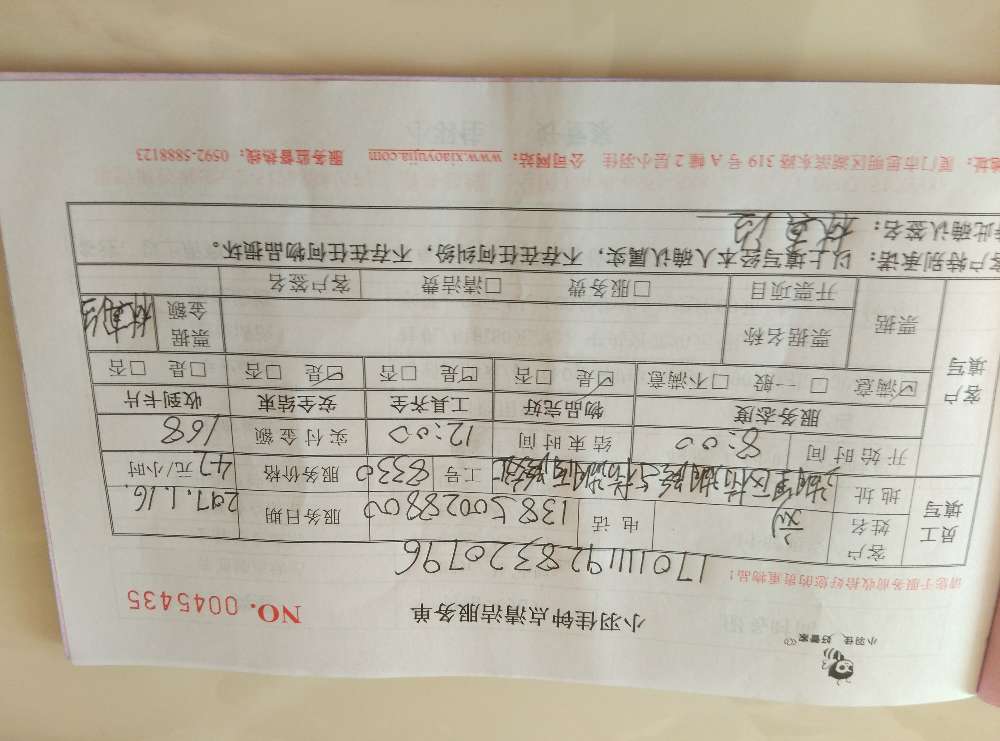 小羽佳 好管家
小羽佳钟点清洁服务单 NO. 0045435
请您于服务前收拾好您的贵重物品!
1701111928320796
员工填写 客户姓名 电话 13850028800 服务日期 2017.1.16.
地址 工号 8330 服务价格 42元/小时
开始时间 8:00 结束时间 12:00 实付金额 168
客户填写 服务态度 物品完好 工具齐全 安全结束 收到卡片
☑满意 □一般 □不满意 ☑是 □否 ☑是 □否 ☑是 □否 □是 □否
票据 票据名称 票据金额
开票项目 □服务费 □清洁费 客户签名
客户特别承诺:以上填写经本人确认属实,不存在任何纠纷,不存在任何物品损坏。
特此确认签名:
地址:厦门市思明区湖滨东路 319 号 A 幢 2 层小羽佳 公司网站:www.xiaoyujia.com 服务监督热线:0592-5888123